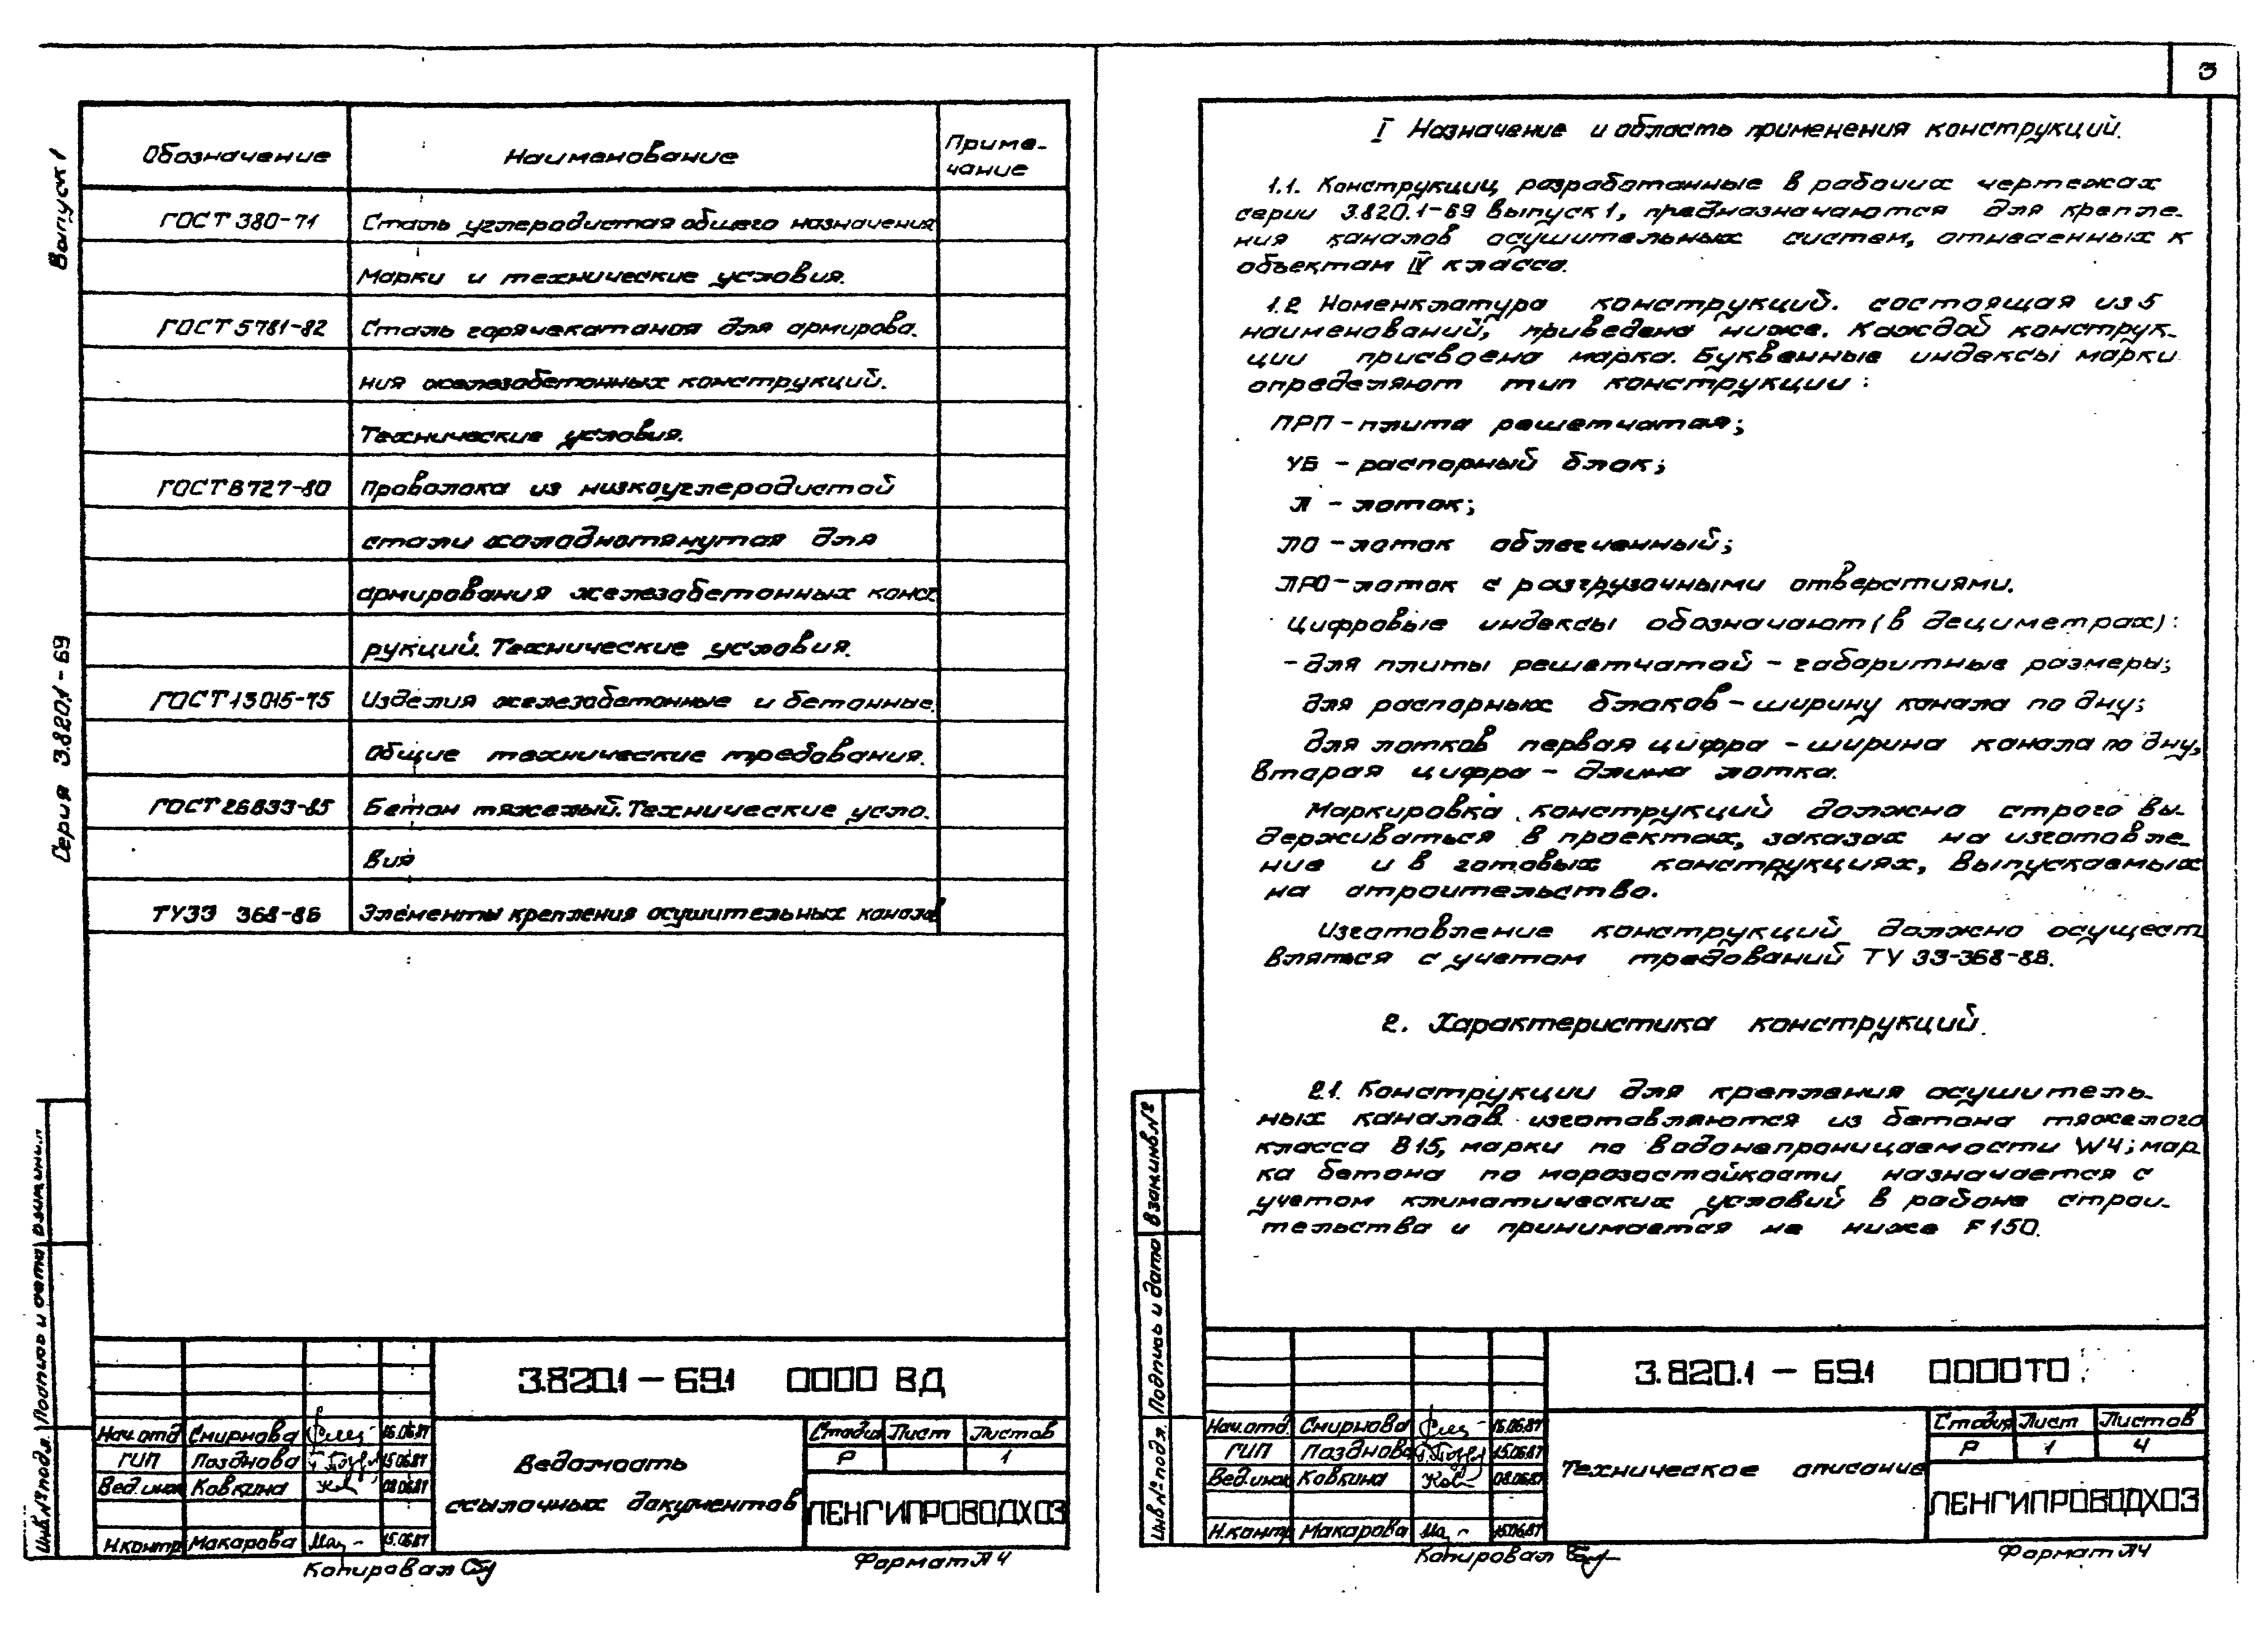 Серия 3.820.1-69
Выпуск 1
Обозначение Наименование Приме-
чание
ГОСТ 380-71 Сталь углеродистая общего назначения
Марки и технические условия.
ГОСТ 5781-82 Сталь горячекатаная для армирова-
ния железобетонных конструкций.
Технические условия.
ГОСТ 6727-80 Проволока из низкоуглеродистой
стали холоднотянутая для
армирования железобетонных конст
рукций. Технические условия.
ГОСТ 13015-75 Изделия железобетонные и бетонные.
Общие технические требования.
ГОСТ 26633-85 Бетон тяжелый. Технические усло-
вия
ТУ33 368-86 Элементы крепления осушительных каналов
3.820.1-69.1 0000 ВД
Нач.отд Смирнова 16.06.87
ГИП Позднова 15.06.87
Вед.инж Ковкина 08.06.87
Н.контр Макарова 15.06.87
Ведомость
ссылочных документов
Стадия Лист Листов
Р 1
ЛЕНГИПРОВОДХОЗ
Инв.№ подл. Подпись и дата
Копировал
Формат А4
3
I Назначение и область применения конструкций.
1.1. Конструкции, разработанные в рабочих чертежах
серии 3.820.1-69 выпуск 1, предназначаются для крепле-
ния каналов осушительных систем, отнесенных к
объектам IV класса.
1.2 Номенклатура конструкций. состоящая из 5
наименований, приведена ниже. Каждой конструк-
ции присвоена марка. Буквенные индексы марки
определяют тип конструкции:
ПРП - плита решетчатая;
УБ - распорный блок;
Л - лоток;
ЛО - лоток облегченный;
ЛРО - лоток с разгрузочными отверстиями.
Цифровые индексы обозначают (в дециметрах):
- для плиты решетчатой - габаритные размеры;
для распорных блоков - ширину канала по дну;
для лотков первая цифра - ширина канала по дну,
вторая цифра - длина лотка.
Маркировка конструкций должна строго вы-
держиваться в проектах, заказах на изготовле-
ние и в готовых конструкциях, выпускаемых
на строительство.
Изготовление конструкций должно осущест
вляться с учетом требований ТУ 33-368-86.
2. Характеристика конструкций.
2.1. Конструкции для крепления осушитель-
ных каналов изготавляются из бетона тяжелого
класса В15, марки по водонепроницаемости W4; мар
ка бетона по морозостойкости назначается с
учетом климатических условий в районе строи-
тельства и принимается не ниже F150.
3.820.1-69.1 0000ТО
Нач.отд Смирнова 16.06.87
ГИП Позднова 15.06.87
Вед.инж Ковкина 08.06.87
Н.контр Макарова 15.06.87
Техническое описание
Стадия Лист Листов
Р 1 4
ЛЕНГИПРОВОДХОЗ
Инв № подл. Подпись и дата Взам.инв.№
Копировал
Формат А4